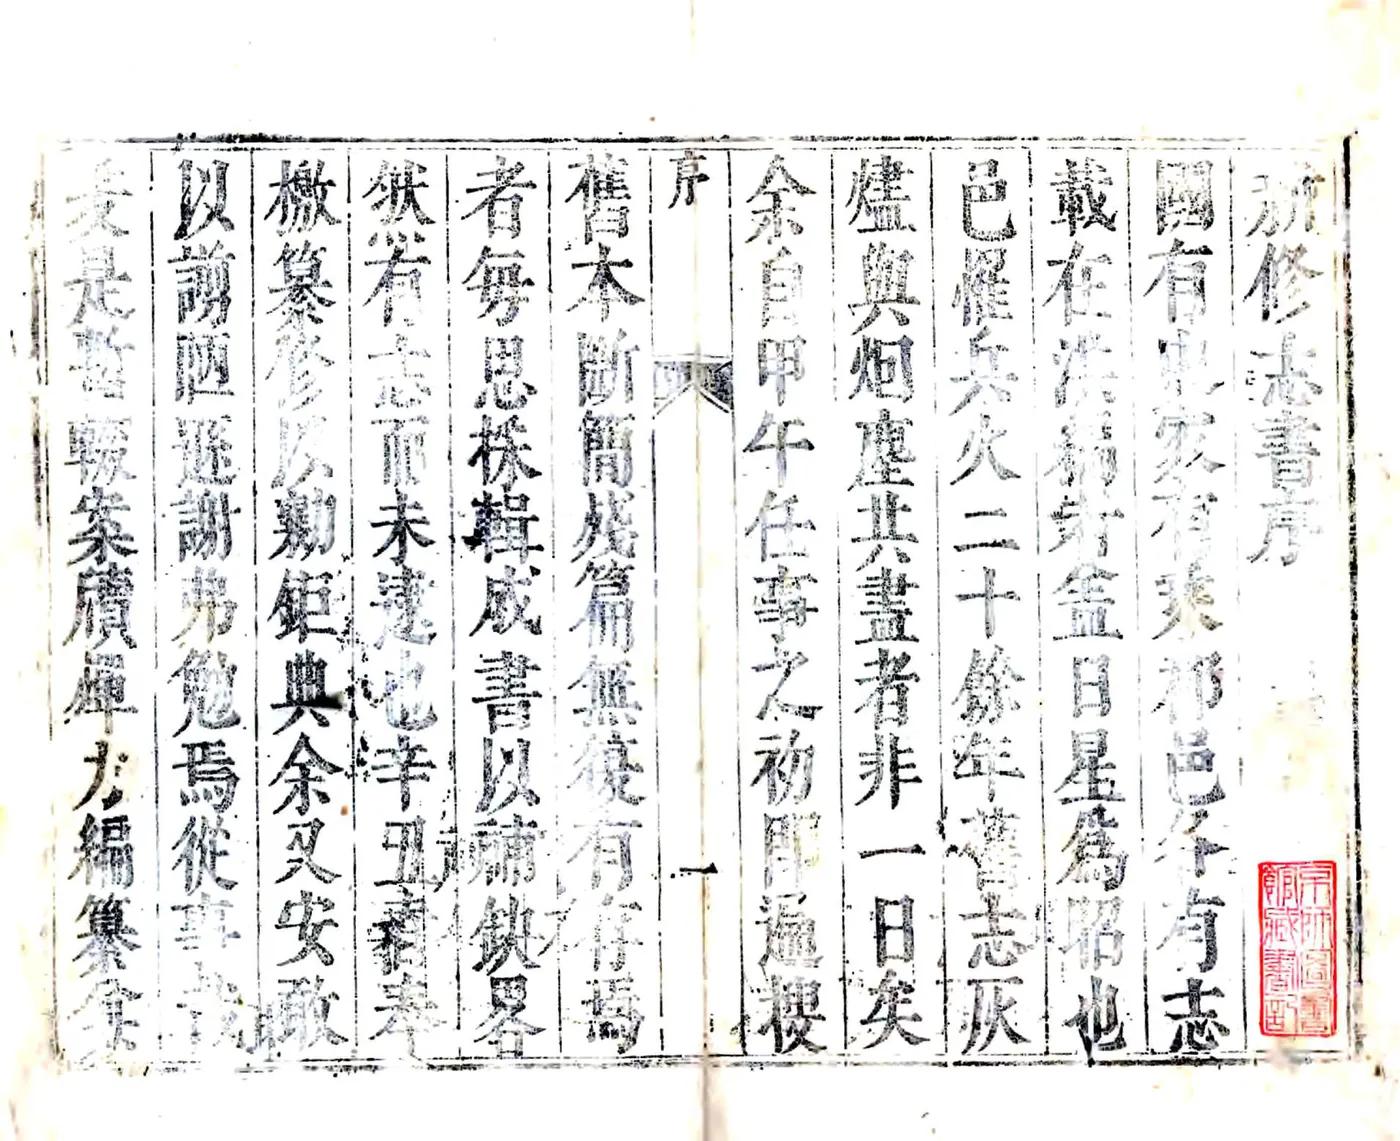 新修志書序
國有史家有乘郡邑各有志
載在流稱昭並日星為昭也
邑罹兵火二十餘年舊志灰
燼與烟塵共盡者非一日矣
余自甲午任事之初即遍搜
序
一
舊本斷簡殘篇無復有存焉
者每思採輯成書以補缺略
然有志而未逮也辛丑春奉
檄纂修以勷鉅典余又安敢
以謭陋遜謝弗勉焉從事哉
爰是暫輟案牘殫力編纂余
京師圖書館藏書記